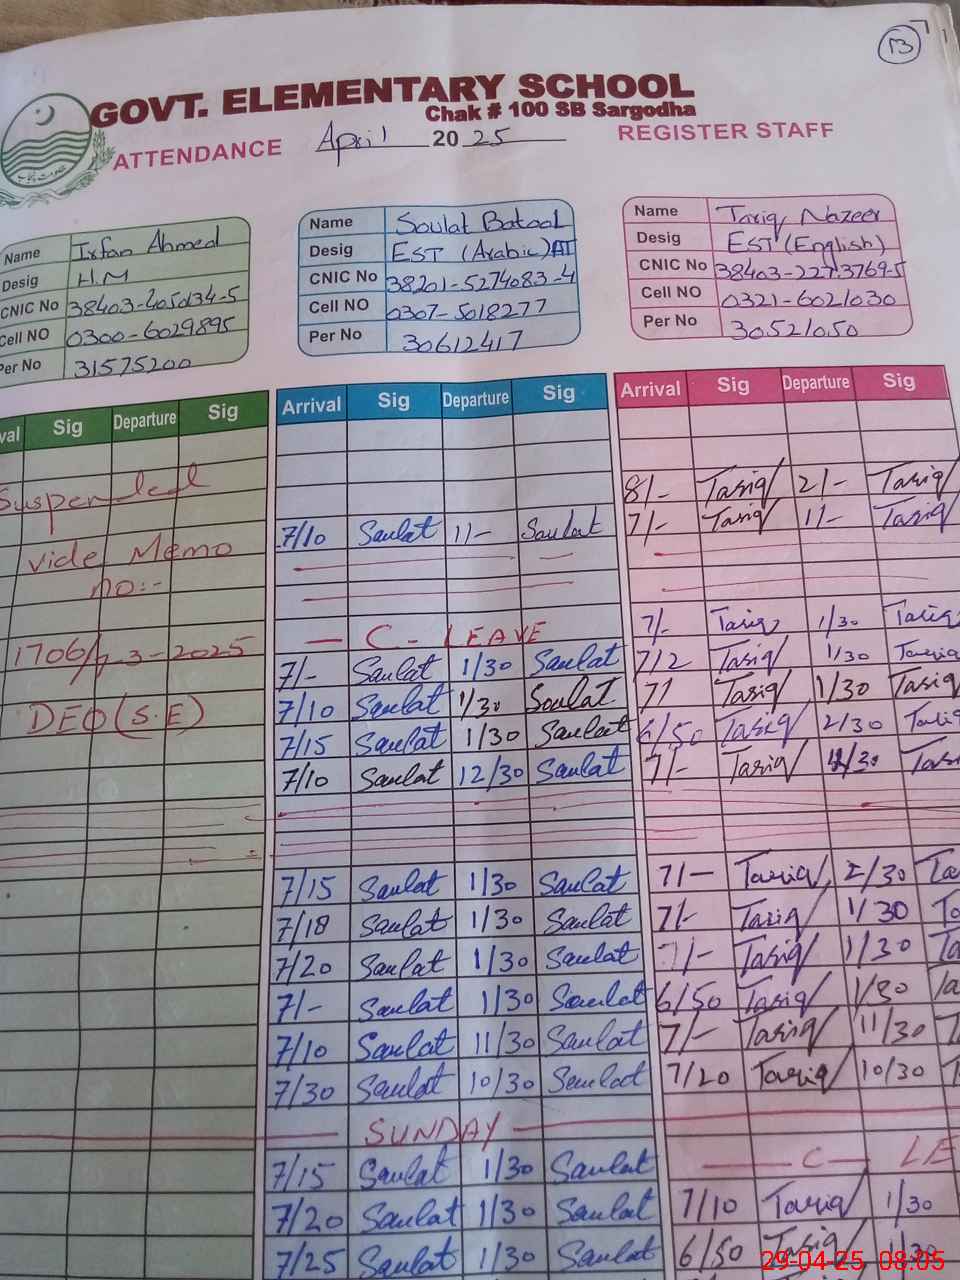 13
GOVT. ELEMENTARY SCHOOL
Chak # 100 SB Sargodha
ATTENDANCE April 2025 REGISTER STAFF
Name Irfan Ahmed
Desig H.M
CNIC No
Cell NO 0300-6029895
Per No 31575200
Name Soulat Batool
Desig EST (Arabic) AT
CNIC No 38201-5274083-4
Cell NO 0307-5018277
Per No 30612417
Name Tariq Nazeer
Desig EST (English)
CNIC No 38403-2273769-5
Cell NO 0321-6021030
Per No 30521050
val Sig Departure Sig
Suspended
vide Memo
no:-
DEO (S.E)
Arrival Sig Departure Sig
7/10 Saulat 11/- Saulat
C - LEAVE
7/- Saulat 1/30 Saulat
7/10 Saulat 1/30 Soulat
7/15 Saulat 1/30 Saulat
7/10 Saulat 12/30 Saulat
7/15 Saulat 1/30 Saulat
7/18 Saulat 1/30 Saulat
7/20 Saulat 1/30 Saulat
7/- Saulat 1/30 Saulat
7/10 Saulat 11/30 Saulat
7/30 Saulat 10/30 Saulat
SUNDAY
7/15 Saulat 1/30 Saulat
7/20 Saulat 1/30 Saulat
7/25 Saulat 1/30 Saulat
Arrival Sig Departure Sig
8/- Tariq 2/- Tariq
7/- Tariq 11/- Tariq
7/- Tariq 1/30 Tariq
7/2 Tariq 1/30 Tariq
7/ Tariq 1/30 Tariq
6/50 Tariq 2/30 Tariq
7/- Tariq Tari
7/- Tariq 2/30 Ta
7/- Tariq 1/30 Ta
7/- Tariq 1/30 Ta
6/50 Tariq 1/30 Ta
7/- Tariq 11/30 T
7/20 Tariq 10/30 T
C - LE
7/10 Tariq 1/30
6/50 Tariq 1/30
29-04-25 08:05